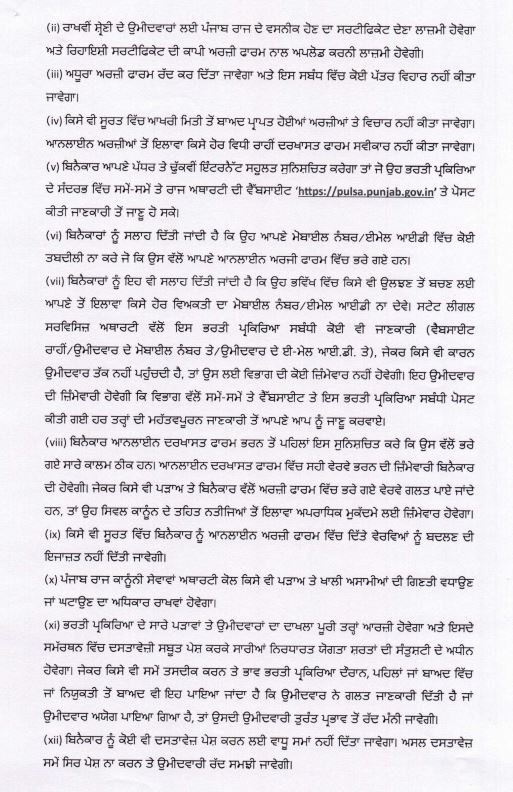 (ii) ਰਾਖਵੀਂ ਸ਼੍ਰੇਣੀ ਦੇ ਉਮੀਦਵਾਰਾਂ ਲਈ ਪੰਜਾਬ ਰਾਜ ਦੇ ਵਸਨੀਕ ਹੋਣ ਦਾ ਸਰਟੀਫਿਕੇਟ ਦੇਣਾ ਲਾਜ਼ਮੀ ਹੋਵੇਗਾ
ਅਤੇ ਰਿਹਾਇਸ਼ੀ ਸਰਟੀਫਿਕੇਟ ਦੀ ਕਾਪੀ ਅਰਜ਼ੀ ਫਾਰਮ ਨਾਲ ਅਪਲੋਡ ਕਰਨੀ ਲਾਜ਼ਮੀ ਹੋਵੇਗੀ।
(iii) ਅਧੂਰਾ ਅਰਜ਼ੀ ਫਾਰਮ ਰੱਦ ਕਰ ਦਿੱਤਾ ਜਾਵੇਗਾ ਅਤੇ ਇਸ ਸਬੰਧ ਵਿੱਚ ਕੋਈ ਪੱਤਰ ਵਿਹਾਰ ਨਹੀਂ ਕੀਤਾ
ਜਾਵੇਗਾ।
(iv) ਕਿਸੇ ਵੀ ਸੂਰਤ ਵਿੱਚ ਆਖਰੀ ਮਿਤੀ ਤੋਂ ਬਾਅਦ ਪ੍ਰਾਪਤ ਹੋਈਆਂ ਅਰਜ਼ੀਆਂ ਤੇ ਵਿਚਾਰ ਨਹੀਂ ਕੀਤਾ ਜਾਵੇਗਾ।
ਆਨਲਾਈਨ ਅਰਜ਼ੀਆਂ ਤੋਂ ਇਲਾਵਾ ਕਿਸੇ ਹੋਰ ਵਿਧੀ ਰਾਹੀਂ ਦਰਖਾਸਤ ਫਾਰਮ ਸਵੀਕਾਰ ਨਹੀਂ ਕੀਤਾ ਜਾਵੇਗਾ।
(v) ਬਿਨੈਕਾਰ ਆਪਣੇ ਪੱਧਰ ਤੇ ਢੁੱਕਵੀਂ ਇੰਟਰਨੈੱਟ ਸਹੂਲਤ ਸੁਨਿਸ਼ਚਿਤ ਕਰੇਗਾ ਤਾਂ ਜੋ ਉਹ ਭਰਤੀ ਪ੍ਰਕਿਰਿਆ
ਦੇ ਸੰਦਰਭ ਵਿੱਚ ਸਮੇਂ-ਸਮੇਂ ਤੇ ਰਾਜ ਅਥਾਰਟੀ ਦੀ ਵੈੱਬਸਾਈਟ 'https://pulsa.punjab.gov.in' ਤੇ ਪੋਸਟ
ਕੀਤੀ ਜਾਣਕਾਰੀ ਤੋਂ ਜਾਣੂ ਹੋ ਸਕੇ।
(vi) ਬਿਨੈਕਾਰਾਂ ਨੂੰ ਸਲਾਹ ਦਿੱਤੀ ਜਾਂਦੀ ਹੈ ਕਿ ਉਹ ਆਪਣੇ ਮੋਬਾਈਲ ਨੰਬਰ/ਈਮੇਲ ਆਈਡੀ ਵਿੱਚ ਕੋਈ
ਤਬਦੀਲੀ ਨਾ ਕਰੇ ਜੋ ਕਿ ਉਸ ਵੱਲੋਂ ਆਪਣੇ ਆਨਲਾਈਨ ਅਰਜ਼ੀ ਫਾਰਮ ਵਿੱਚ ਭਰੇ ਗਏ ਹਨ।
(vii) ਬਿਨੈਕਾਰਾਂ ਨੂੰ ਇਹ ਵੀ ਸਲਾਹ ਦਿੱਤੀ ਜਾਂਦੀ ਹੈ ਕਿ ਉਹ ਭਵਿੱਖ ਵਿੱਚ ਕਿਸੇ ਵੀ ਉਲਝਣ ਤੋਂ ਬਚਣ ਲਈ
ਆਪਣੇ ਤੋਂ ਇਲਾਵਾ ਕਿਸੇ ਹੋਰ ਵਿਅਕਤੀ ਦਾ ਮੋਬਾਈਲ ਨੰਬਰ/ਈਮੇਲ ਆਈਡੀ ਨਾ ਦੇਵੇ। ਸਟੇਟ ਲੀਗਲ
ਸਰਵਿਸਿਜ਼ ਅਥਾਰਟੀ ਵੱਲੋਂ ਇਸ ਭਰਤੀ ਪ੍ਰਕਿਰਿਆ ਸਬੰਧੀ ਕੋਈ ਵੀ ਜਾਣਕਾਰੀ (ਵੈਬਸਾਈਟ
ਰਾਹੀਂ/ਉਮੀਦਵਾਰ ਦੇ ਮੋਬਾਈਲ ਨੰਬਰ ਤੇ/ਉਮੀਦਵਾਰ ਦੇ ਈ-ਮੇਲ ਆਈ.ਡੀ. ਤੇ), ਜੇਕਰ ਕਿਸੇ ਵੀ ਕਾਰਨ
ਉਮੀਦਵਾਰ ਤੱਕ ਨਹੀਂ ਪਹੁੰਚਦੀ ਹੈ, ਤਾਂ ਉਸ ਲਈ ਵਿਭਾਗ ਦੀ ਕੋਈ ਜ਼ਿੰਮੇਵਾਰ ਨਹੀਂ ਹੋਵੇਗੀ। ਇਹ ਉਮੀਦਵਾਰ
ਦੀ ਜ਼ਿੰਮੇਵਾਰੀ ਹੋਵੇਗੀ ਕਿ ਵਿਭਾਗ ਵੱਲੋਂ ਸਮੇਂ-ਸਮੇਂ ਤੇ ਵੈੱਬਸਾਈਟ ਤੇ ਇਸ ਭਰਤੀ ਪ੍ਰਕਿਰਿਆ ਸਬੰਧੀ ਪੋਸਟ
ਕੀਤੀ ਗਈ ਹਰ ਤਰ੍ਹਾਂ ਦੀ ਮਹੱਤਵਪੂਰਨ ਜਾਣਕਾਰੀ ਤੋਂ ਆਪਣੇ ਆਪ ਨੂੰ ਜਾਣੂ ਕਰਵਾਏ।
(viii) ਬਿਨੈਕਾਰ ਆਨਲਾਈਨ ਦਰਖਾਸਤ ਫਾਰਮ ਭਰਨ ਤੋਂ ਪਹਿਲਾਂ ਇਸ ਸੁਨਿਸ਼ਚਿਤ ਕਰੇ ਕਿ ਉਸ ਵੱਲੋਂ ਭਰੇ
ਗਏ ਸਾਰੇ ਕਾਲਮ ਠੀਕ ਹਨ। ਆਨਲਾਈਨ ਦਰਖਾਸਤ ਫਾਰਮ ਵਿੱਚ ਸਹੀ ਵੇਰਵੇ ਭਰਨ ਦੀ ਜ਼ਿੰਮੇਵਾਰੀ ਬਿਨੈਕਾਰ
ਦੀ ਹੋਵੇਗੀ। ਜੇਕਰ ਕਿਸੇ ਵੀ ਪੜਾਅ ਤੇ ਬਿਨੈਕਾਰ ਵੱਲੋਂ ਅਰਜ਼ੀ ਫਾਰਮ ਵਿੱਚ ਭਰੇ ਗਏ ਵੇਰਵੇ ਗਲਤ ਪਾਏ ਜਾਂਦੇ
ਹਨ, ਤਾਂ ਉਹ ਸਿਵਲ ਕਾਨੂੰਨ ਦੇ ਤਹਿਤ ਨਤੀਜਿਆਂ ਤੋਂ ਇਲਾਵਾ ਅਪਰਾਧਿਕ ਮੁਕੱਦਮੇ ਲਈ ਜ਼ਿੰਮੇਵਾਰ ਹੋਵੇਗਾ।
(ix) ਕਿਸੇ ਵੀ ਸੂਰਤ ਵਿੱਚ ਬਿਨੈਕਾਰ ਨੂੰ ਆਨਲਾਈਨ ਅਰਜ਼ੀ ਫਾਰਮ ਵਿੱਚ ਦਿੱਤੇ ਵੇਰਵਿਆਂ ਨੂੰ ਬਦਲਣ ਦੀ
ਇਜਾਜ਼ਤ ਨਹੀਂ ਦਿੱਤੀ ਜਾਵੇਗੀ।
(x) ਪੰਜਾਬ ਰਾਜ ਕਾਨੂੰਨੀ ਸੇਵਾਵਾਂ ਅਥਾਰਟੀ ਕੋਲ ਕਿਸੇ ਵੀ ਪੜਾਅ ਤੇ ਖਾਲੀ ਅਸਾਮੀਆਂ ਦੀ ਗਿਣਤੀ ਵਧਾਉਣ
ਜਾਂ ਘਟਾਉਣ ਦਾ ਅਧਿਕਾਰ ਰਾਖਵਾਂ ਹੋਵੇਗਾ।
(xi) ਭਰਤੀ ਪ੍ਰਕਿਰਿਆ ਦੇ ਸਾਰੇ ਪੜਾਵਾਂ ਤੇ ਉਮੀਦਵਾਰਾਂ ਦਾ ਦਾਖਲਾ ਪੂਰੀ ਤਰ੍ਹਾਂ ਆਰਜ਼ੀ ਹੋਵੇਗਾ ਅਤੇ ਇਸਦੇ
ਸਮੱਰਥਨ ਵਿੱਚ ਦਸਤਾਵੇਜ਼ੀ ਸਬੂਤ ਪੇਸ਼ ਕਰਕੇ ਸਾਰੀਆਂ ਨਿਰਧਾਰਤ ਯੋਗਤਾ ਸ਼ਰਤਾਂ ਦੀ ਸੰਤੁਸ਼ਟੀ ਦੇ ਅਧੀਨ
ਹੋਵੇਗਾ। ਜੇਕਰ ਕਿਸੇ ਵੀ ਸਮੇਂ ਤਸਦੀਕ ਕਰਨ ਤੇ ਭਾਵ ਭਰਤੀ ਪ੍ਰਕਿਰਿਆ ਦੌਰਾਨ, ਪਹਿਲਾਂ ਜਾਂ ਬਾਅਦ ਵਿੱਚ
ਜਾਂ ਨਿਯੁਕਤੀ ਤੋਂ ਬਾਅਦ ਵੀ ਇਹ ਪਾਇਆ ਜਾਂਦਾ ਹੈ ਕਿ ਉਮੀਦਵਾਰ ਨੇ ਗਲਤ ਜਾਣਕਾਰੀ ਦਿੱਤੀ ਹੈ ਜਾਂ
ਉਮੀਦਵਾਰ ਅਯੋਗ ਪਾਇਆ ਗਿਆ ਹੈ, ਤਾਂ ਉਸਦੀ ਉਮੀਦਵਾਰੀ ਤੁਰੰਤ ਪ੍ਰਭਾਵ ਤੋਂ ਰੱਦ ਮੰਨੀ ਜਾਵੇਗੀ।
(xii) ਬਿਨੈਕਾਰ ਨੂੰ ਕੋਈ ਵੀ ਦਸਤਾਵੇਜ਼ ਪੇਸ਼ ਕਰਨ ਲਈ ਵਾਧੂ ਸਮਾਂ ਨਹੀਂ ਦਿੱਤਾ ਜਾਵੇਗਾ। ਅਸਲ ਦਸਤਾਵੇਜ਼
ਸਮੇਂ ਸਿਰ ਪੇਸ਼ ਨਾ ਕਰਨ ਤੇ ਉਮੀਦਵਾਰੀ ਰੱਦ ਸਮਝੀ ਜਾਵੇਗੀ।